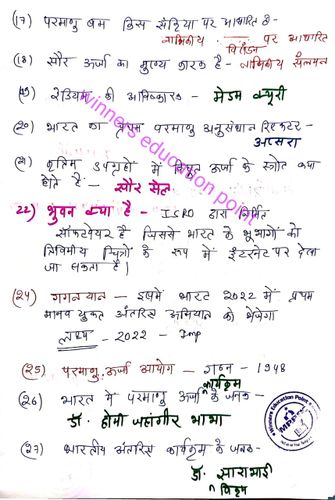 (17) परमाणु बम किस संक्रिया पर आधारित है-
नाभिकीय विखंडन पर आधारित
(18) सौर ऊर्जा का मुख्य कारक है - नाभिकीय संलयन
(19) रेडियम की आविष्कारक - मैडम क्यूरी
(20) भारत का प्रथम परमाणु अनुसंधान रिएक्टर-
अप्सरा
(21) कृत्रिम उपग्रहों में विद्युत ऊर्जा के स्त्रोत क्या
होते हैं - सौर सेल
22) भुवन क्या है - ISRO द्वारा निर्मित
सॉफ्टवेयर है जिससे भारत के भूभागों को
त्रिविमीय चित्रों के रूप में इंटरनेट पर देखा
जा सकता है।
(24) गगनयान - इसमें भारत 2022 में प्रथम
मानव युक्त अंतरिक्ष अभियान को भेजेगा
लक्ष्य - 2022 - Imp
(25) परमाणु ऊर्जा आयोग - गठन - 1948
(26) भारत में परमाणु ऊर्जा कार्यक्रम के जनक -
डॉ. होमी जहांगीर भाभा
(27) भारतीय अंतरिक्ष कार्यक्रम के जनक-
डॉ. विक्रम साराभाई
winners education point